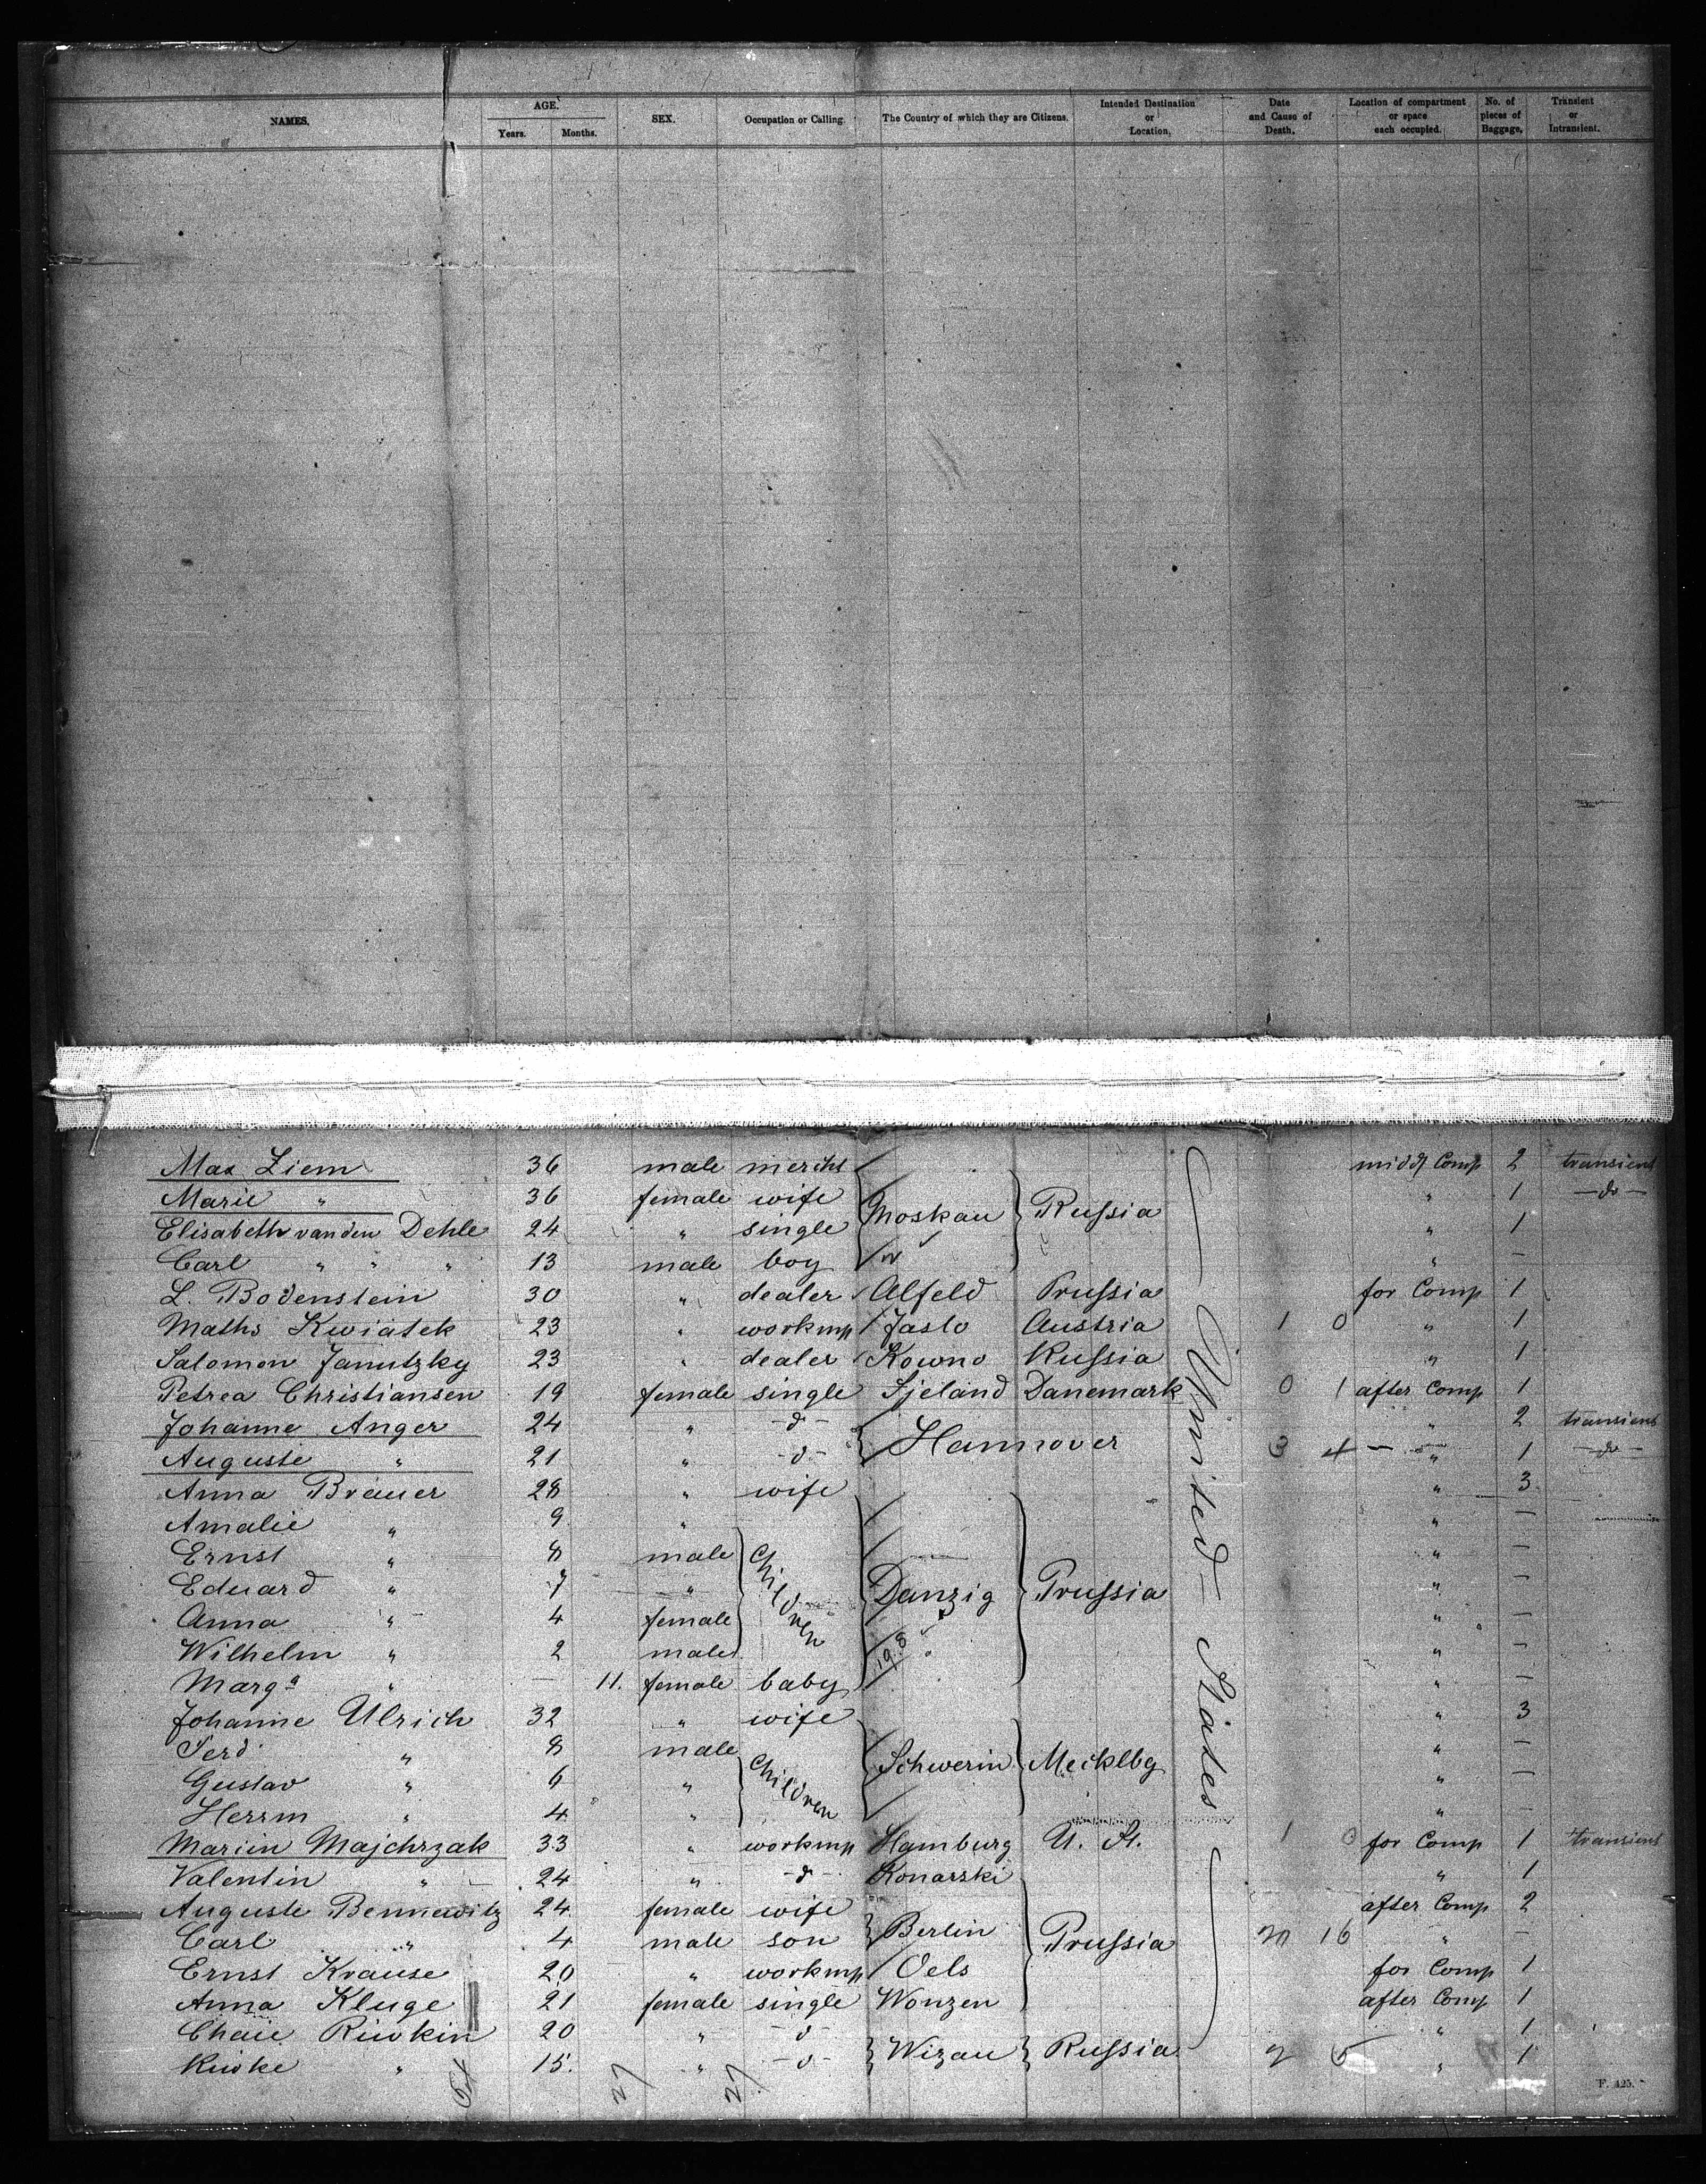 NAMES. AGE. Years. Months. SEX. Occupation or Calling. The Country of which they are Citizens. Intended Destination or Location. Date and Cause of Death. Location of compartment or space each occupied. No. of pieces of Baggage. Transient or Intransient.
Max Ziem 36 male mercht middl Comp 2 transient
Marie " 36 female wife " 1 -do-
Elisabeth van den Dehle 24 " single Moskau Russia " 1
Carl " " " 13 male boy " " -
L. Bodenstein 30 " dealer Alfeld Prussia for Comp 1
Maths Kwiatek 23 " workmp Jaslo Austria 1 0 " 1
Salomon Janutzky 23 " dealer Kowno Russia " 1
Petrea Christiansen 19 female single Sjeland Danemark 0 1 after Comp 1
Johanne Anger 24 " -d- " 2 transient
Auguste " 21 " -d- Hannover 3 4 " 1 -do-
Anna Bräuer 28 " wife " 3
Amalie " 9 " " -
Ernst " 8 male " -
Eduard " 7 " Children Danzig Prussia " -
Anna " 4 female " -
Wilhelm " 2 male 198 " -
Marga " - 11. female baby " -
Johanne Ulrich 32 " wife " 3
Ferd " 8 male " -
Gustav " 6 " Children Schwerin Mecklbg " -
Herrm " 4 " " -
United States
Marcin Majchrzak 33 " workmp Hamburg U. St. 1 0 for Comp 1 transient
Valentin " 24 " -d- Konarski " 1
Auguste Bennewitz 24 female wife after Comp 2
Carl " 4 male son Berlin Prussia 20 16 " -
Ernst Krause 20 " workmp Oels for Comp 1
Anna Kluge 21 female single Wonzen after Comp 1
Chaie Riwkin 20 " -d- " 1
Riwke " 15. " -d- Wizau Russia 2 5 " 1
27 27
F. 425.